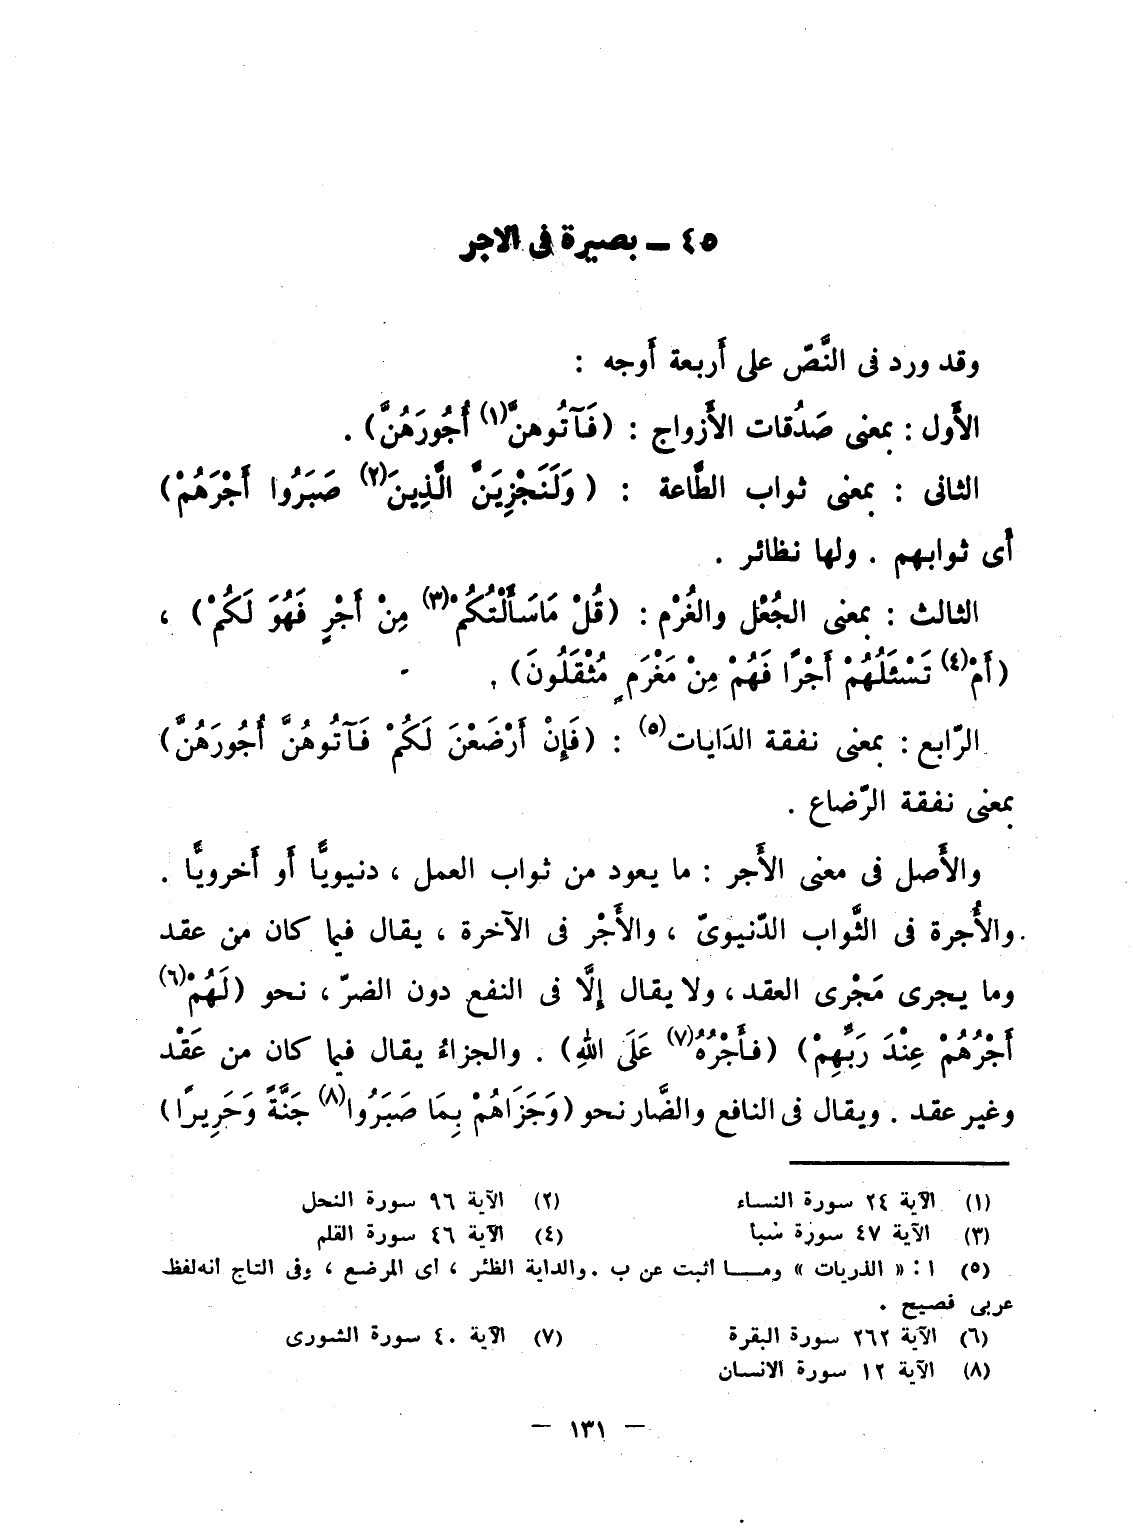 ٤٥ ـ بصيرة فى الاجر
وقد ورد فى النَّصّ على أَربعة أَوجه :
الأَول : بمعنى صَدُقات الأَزواج : (فَـآتُوهنَّ(١) أُجُورَهُنَّ) .
الثانى : بمعنى ثواب الطَّاعة : (وَلَنَجْزِيَنَّ الَّذِينَ(٢) صَبَرُوا أَجْرَهُمْ)
أَى ثوابهم . ولها نظائر .
الثالث : بمعنى الجُعْل والغُرْم : (قُلْ مَاسَأَلْتُكُمْ(٣) مِنْ أَجْرٍ فَهُوَ لَكُمْ) ،
(أَمْ(٤) تَسْئَلُهُمْ أَجْرًا فَهُمْ مِنْ مَغْرَمٍ مُثْقَلُونَ) .
الرّابع : بمعنى نفقة الدَايات(٥) : (فَإِنْ أَرْضَعْنَ لَكُمْ فَـآتُوهُنَّ أُجُورَهُنَّ)
بمعنى نفقة الرّضاع .
والأَصل فى معنى الأَجر : ما يعود من ثواب العمل ، دنيويًّا أَو أَخرويًّا .
والأُجرة فى الثَّواب الدّنيوىّ ، والأَجْر فى الآخرة ، يقال فيما كان من عقد
وما يجرى مَجْرى العقد ، ولا يقال إِلَّا فى النفع دون الضرّ ، نحو (لَهُمْ(٦)
أَجْرُهُمْ عِنْدَ رَبِّهِمْ) (فأَجْرُهُ(٧) عَلَى اللهِ) . والجزاءُ يقال فيما كان من عَقْد
وغير عقد . ويقال فى النافع والضَّار نحو (وَجَزَاهُمْ بِمَا صَبَرُوا(٨) جَنَّةً وَحَرِيرًا)
(١) الآية ٢٤ سورة النساء (٢) الآية ٩٦ سورة النحل
(٣) الآية ٤٧ سورة سبا (٤) الآية ٤٦ سورة القلم
(٥) ا : « الذريات » ومـــا أثبت عن ب . والداية الظئر ، اى المرضع ، وفى التاج أنه لفظ
عربى فصيح .
(٦) الآية ٢٦٢ سورة البقرة (٧) الآية ٤٠ سورة الشورى
(٨) الآية ١٢ سورة الانسان
— ١٣١ —